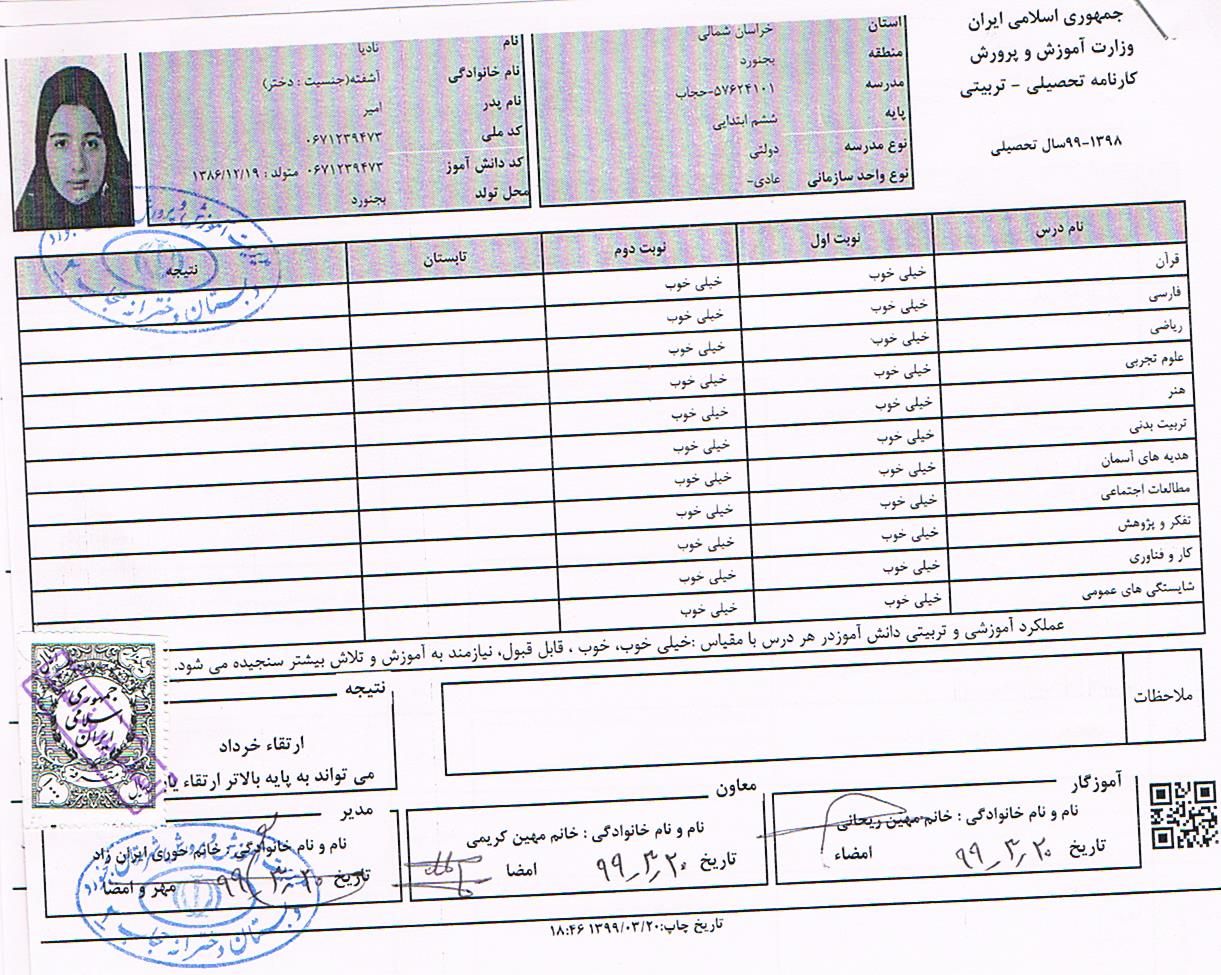 جمهوری اسلامی ایران
وزارت آموزش و پرورش
کارنامه تحصیلی - تربیتی
۹۹-۱۳۹۸سال تحصیلی
استان خراسان شمالی
منطقه بجنورد
مدرسه ۵۷۶۲۴۱۰۱-حجاب
پایه ششم ابتدایی
نوع مدرسه دولتی
نوع واحد سازمانی عادی-
نام نادیا
نام خانوادگی آشفته(جنسیت : دختر)
نام پدر امیر
کد ملی ۰۶۷۱۲۳۹۴۷۳
کد دانش آموز ۰۶۷۱۲۳۹۴۷۳ متولد : ۱۳۸۶/۱۲/۱۹
محل تولد بجنورد
نام درس نوبت اول نوبت دوم تابستان نتیجه
قرآن خیلی خوب خیلی خوب
فارسی خیلی خوب خیلی خوب
ریاضی خیلی خوب خیلی خوب
علوم تجربی خیلی خوب خیلی خوب
هنر خیلی خوب خیلی خوب
تربیت بدنی خیلی خوب خیلی خوب
هدیه های آسمان خیلی خوب خیلی خوب
مطالعات اجتماعی خیلی خوب خیلی خوب
تفکر و پژوهش خیلی خوب خیلی خوب
کار و فناوری خیلی خوب خیلی خوب
شایستگی های عمومی خیلی خوب خیلی خوب
عملکرد آموزشی و تربیتی دانش آموزدر هر درس با مقیاس :خیلی خوب، خوب ، قابل قبول، نیازمند به آموزش و تلاش بیشتر سنجیده می شود.
ملاحظات
نتیجه
ارتقاء خرداد
می تواند به پایه بالاتر ارتقاء
جمهوری
اسلامی
ایران
آموزگار
نام و نام خانوادگی : خانم مهین ریحانی
تاریخ ۹۹_۳_۲۰ امضاء
معاون
نام و نام خانوادگی : خانم مهین کریمی
تاریخ ۹۹_۳_۲۰ امضا
مدیر
نام و نام خانوادگی : خانم حوری ایران زاد
تاریخ ۹۹_۳_۲۰ مهر و امضا
دبستان دخترانه حجاب
تاریخ چاپ:۱۳۹۹/۰۳/۲۰ ۱۸:۴۶